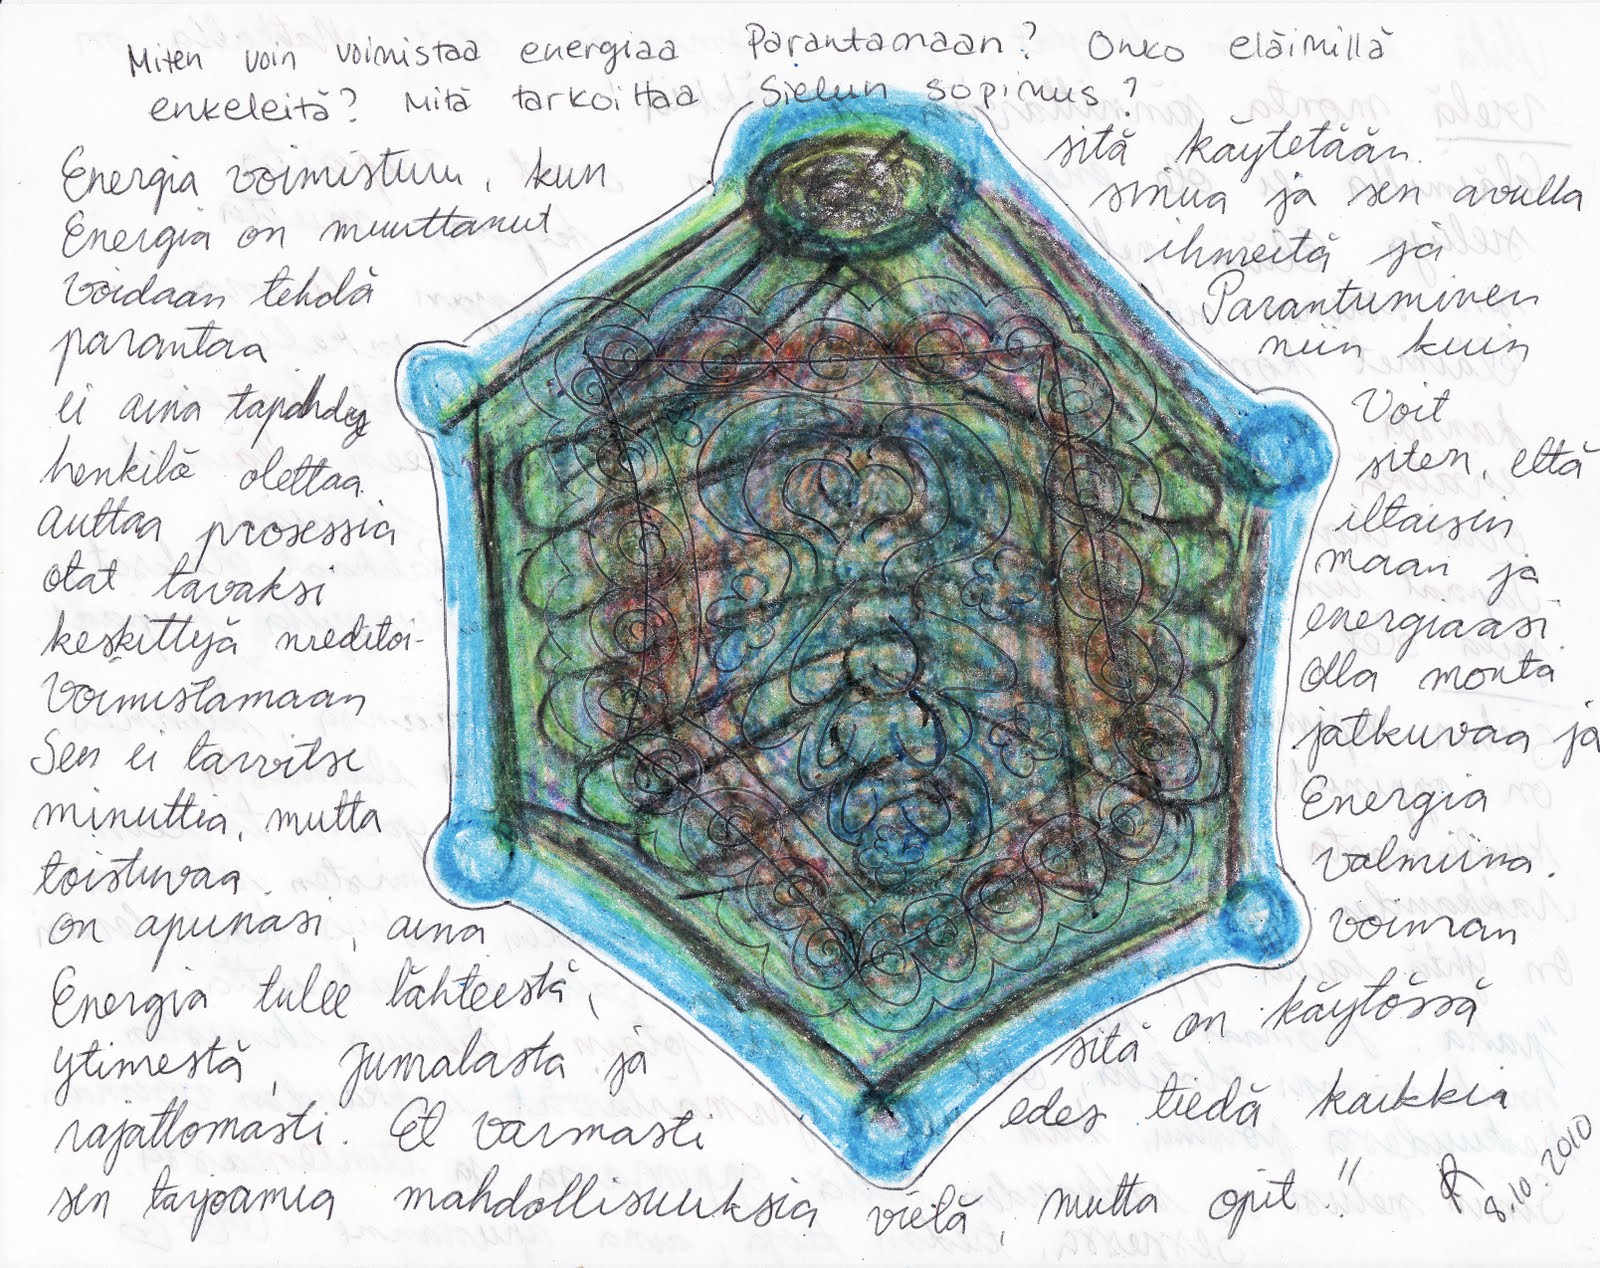 Miten voin voimistaa energiaa Parantamaan? Onko eläimillä
enkeleitä? Mitä tarkoittaa Sielun sopimus?
Energia voimistuu, kun sitä käytetään.
Energia on muuttanut sinua ja sen avulla
voidaan tehdä ihmeitä ja
parantaa Parantuminen
ei aina tapahdu niin kuin
henkilö olettaa. Voit
auttaa prosessia siten, että
otat tavaksi iltaisin
keskittyä meditoi- maan ja
voimistamaan energiaasi.
Sen ei tarvitse olla monta
minuuttia, mutta jatkuvaa ja
toistuvaa. Energia
on apunasi, aina valmiina.
Energia tulee lähteestä, voiman
ytimestä, Jumalasta ja sitä on käytössä
rajattomasti. Et varmasti edes tiedä kaikkia
sen tarjoamia mahdollisuuksia vielä, mutta opit!!
8.10.2010